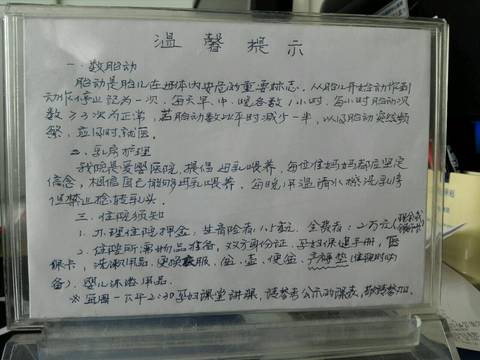 温馨提示
一. 数胎动
胎动是胎儿在母体内安危的重要标志。从胎儿开始动作到
动作停止记为一次,每天早.中.晚各数1小时,每小时胎动次
数≥3次为正常,若胎动数比平时减少一半,以及胎动突然频
繁,应及时就医。
二. 乳房护理
我院是爱婴医院,提倡母乳喂养,每位住妈妈都应坚定
信念,相信自己能够母乳喂养,每晚用温清水擦洗乳房
但禁止抢转乳头。
三. 住院须知
1. 办理住院押金,生育险者:1万元,全费者:2万元(现金或银行卡)
2. 住院所需物品准备,双方身份证、孕妇保健手册,医
保卡,洗漱用品、更换衣服、盆、盂、便盆、产褥垫(住院时必
备).婴儿沐浴用品.
※ 每周一下午2:30孕妇课堂讲课,请参考公示的课表,敬请参加.